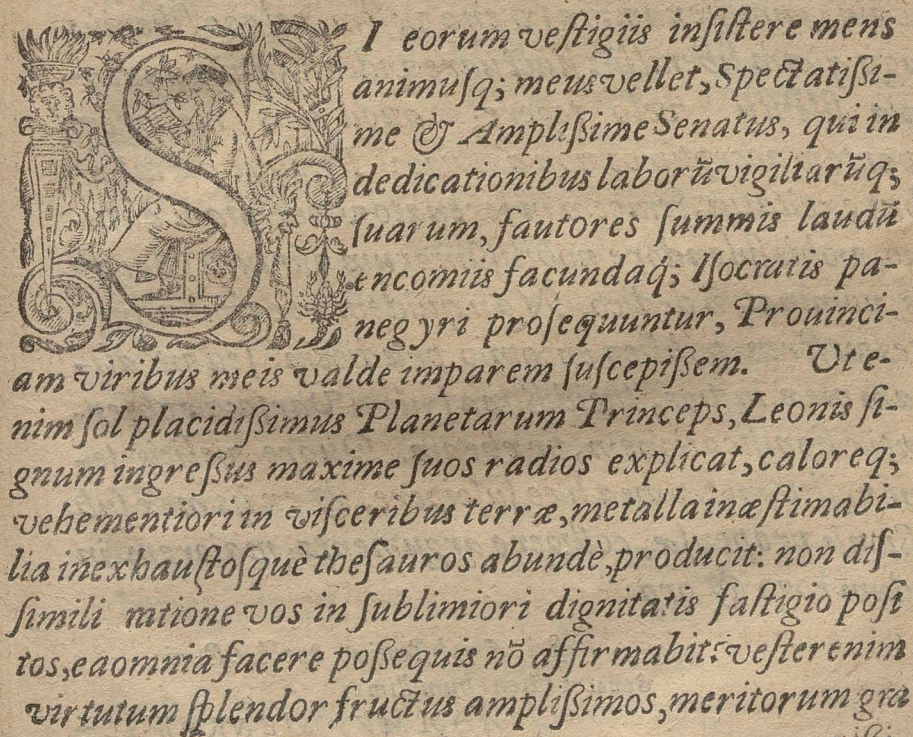 SI eorum veſtigiis inſiſtere mens
animuſq; meus vellet, Spectatiſsi-
me & Ampliſsime Senatus, qui in
dedicationibus laborũ vigiliarũq;
ſuarum, fautores ſummis laudũ
encomiis facundaq́; Iſocratis pa-
negyri proſequuntur, Prouinci-
am viribus meis valde imparem ſuſcepiſsem. Ut e-
nim ſol placidiſsimus Planetarum Princeps, Leonis ſi-
gnum ingreſsus maxime ſuos radios explicat, caloreq;
vehementiori in viſceribus terræ, metalla inæſtimabi-
lia inexhauſtoſquè theſauros abundè, producit: non diſ-
ſimili ratione vos in ſublimiori dignitatis faſtigio poſi
tos, ea omnia facere poſse quis nõ affirmabit: veſter enim
virtutum ſplendor fructus ampliſsimos, meritorum gra